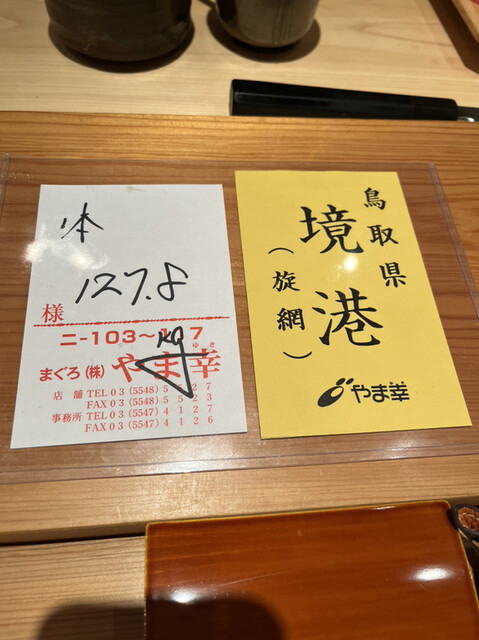 本
127.8
kg
様
ニ-103~107
ゆき
まぐろ(株)やま幸
店舗 TEL 03(5548)5 27
FAX 03(5548)5523
事務所 TEL 03(5547)4127
FAX 03(5547)4126
鳥取県
境港
(旋網)
やま幸